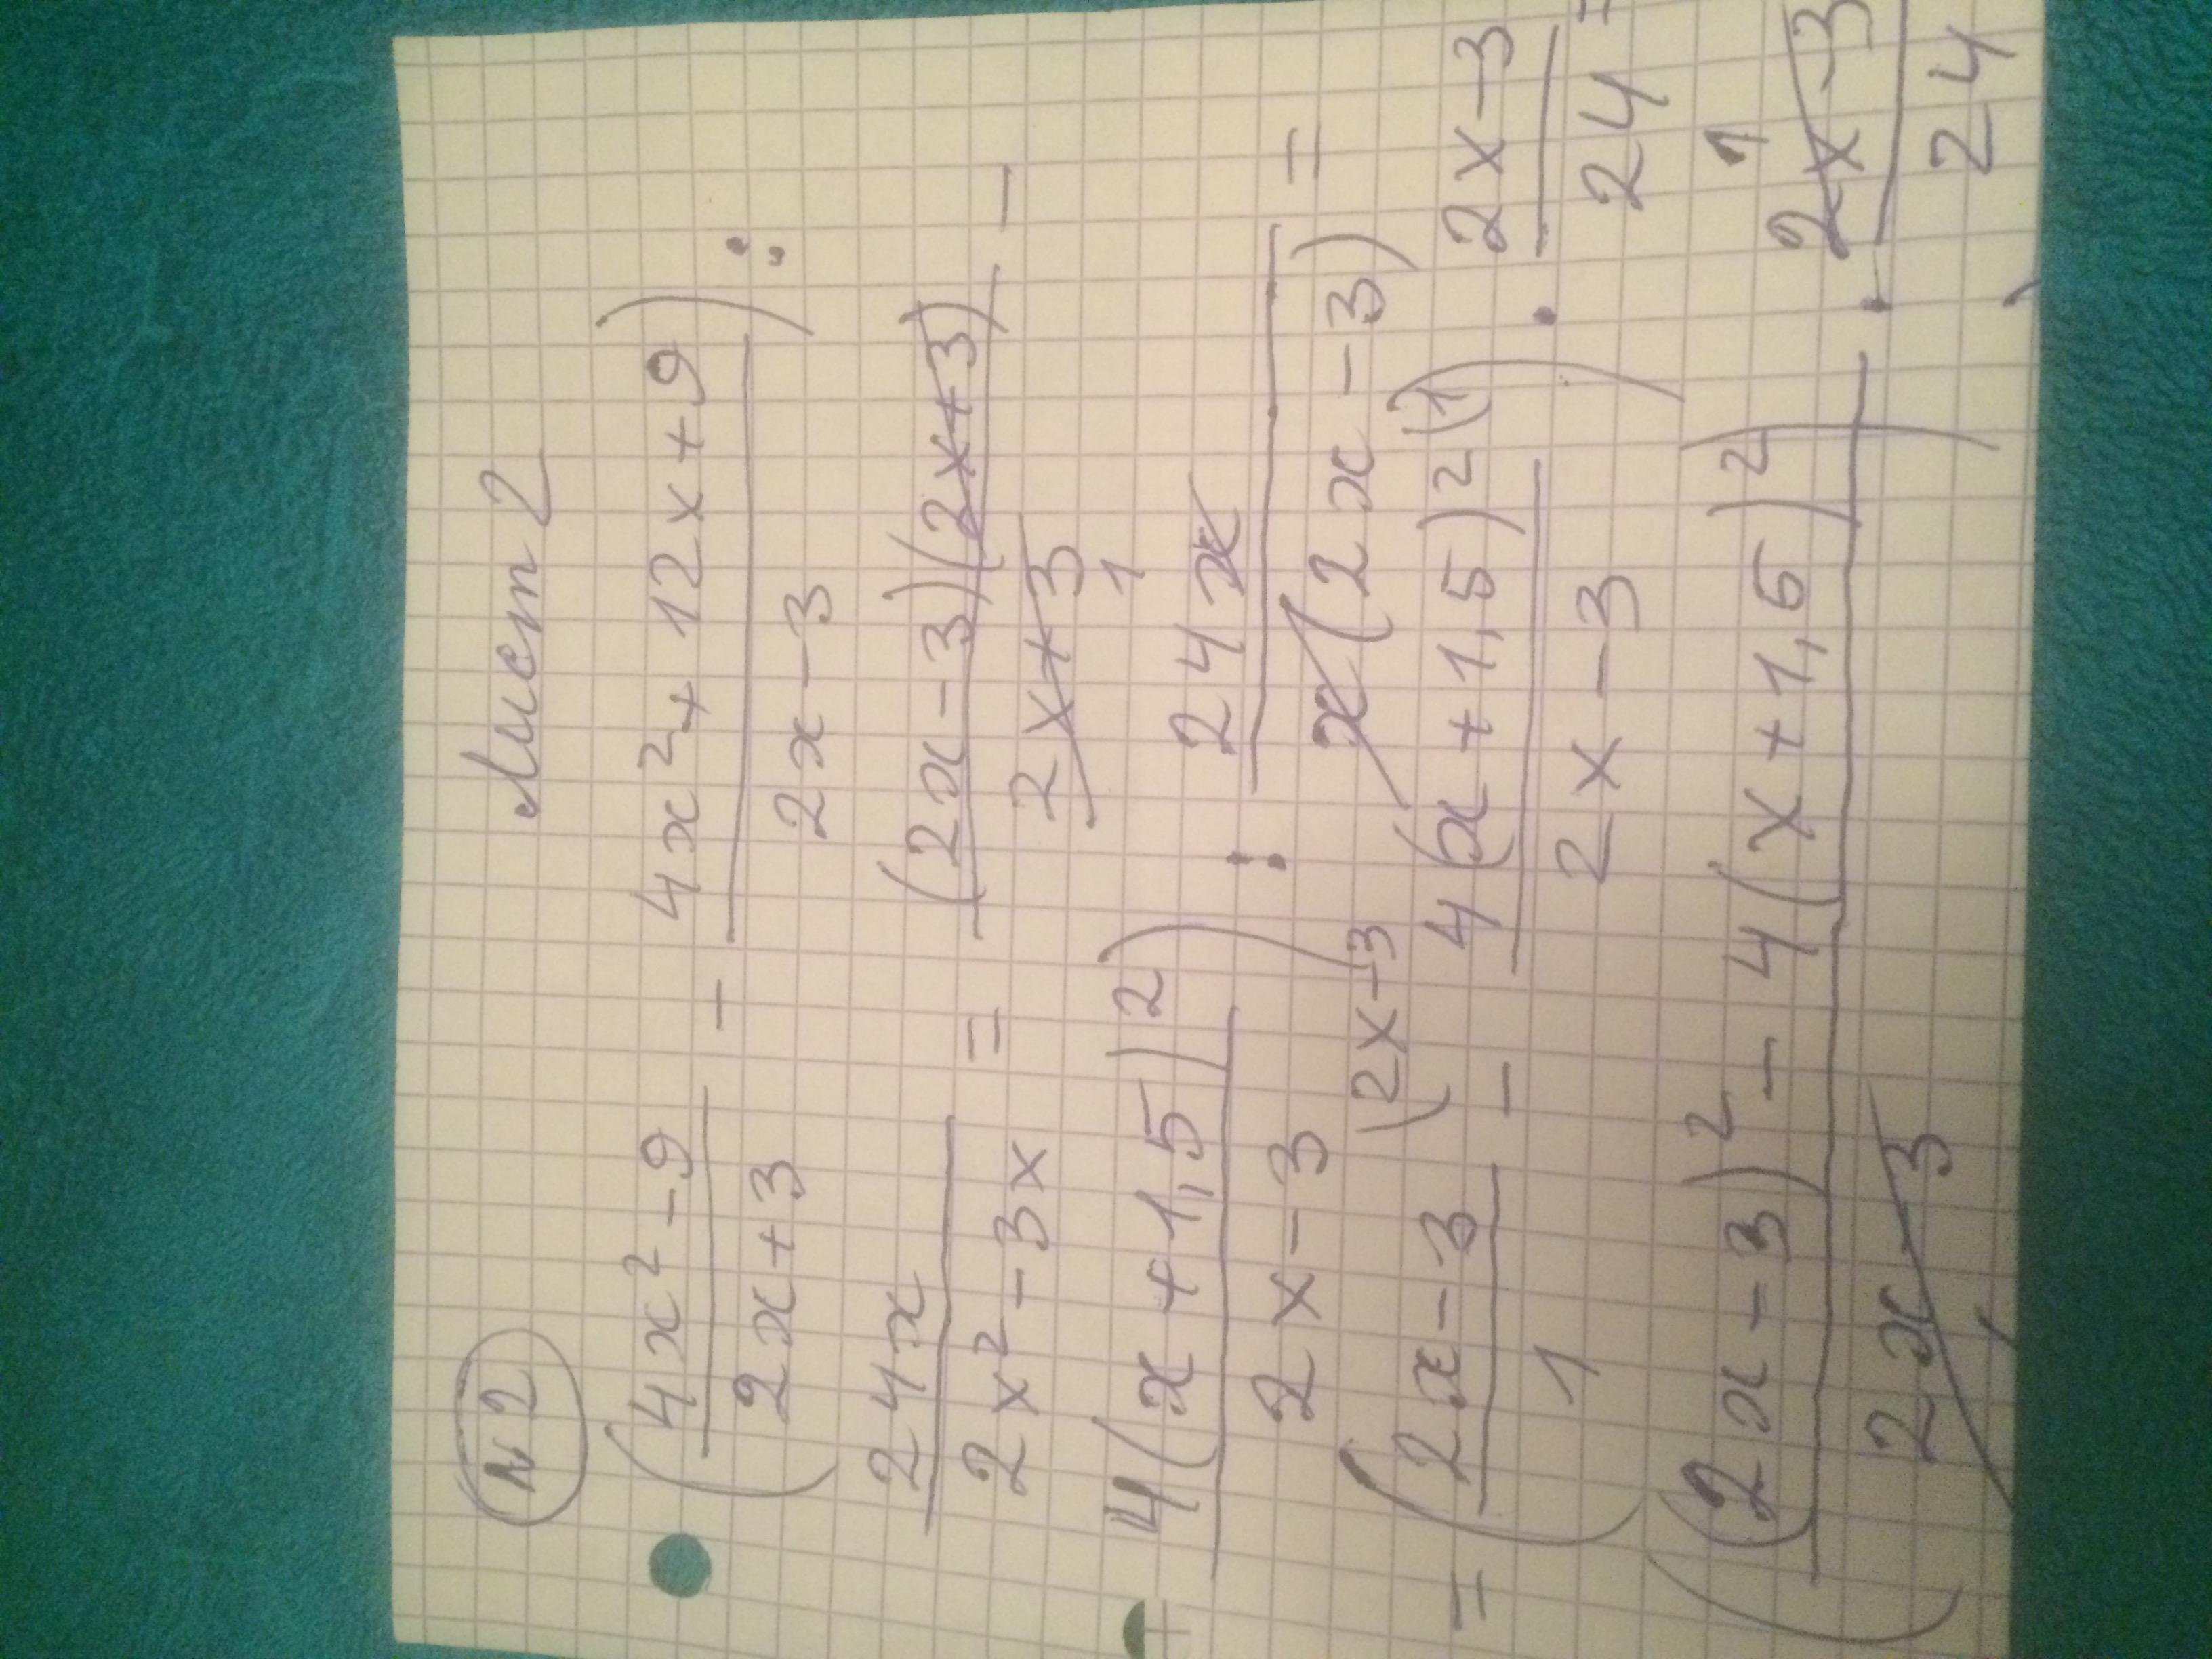 №2 Лист 2
( (4x² - 9)/(2x + 3) - (4x² + 12x + 9)/(2x - 3) ) :
24x/(2x² - 3x) = (2x - 3)(2x + 3)/(2x + 3) 1 -
4(x + 1,5)²/(2x - 3) ) : 24x/(x(2x - 3)) =
= ( (2x - 3)/1 (2x - 3 - 4(x + 1,5)² (1/(2x - 3) ) · (2x - 3)/24 =
( ((2x - 3)² - 4(x + 1,5)²)/(2x - 3) ) · 1 (2x - 3)/24